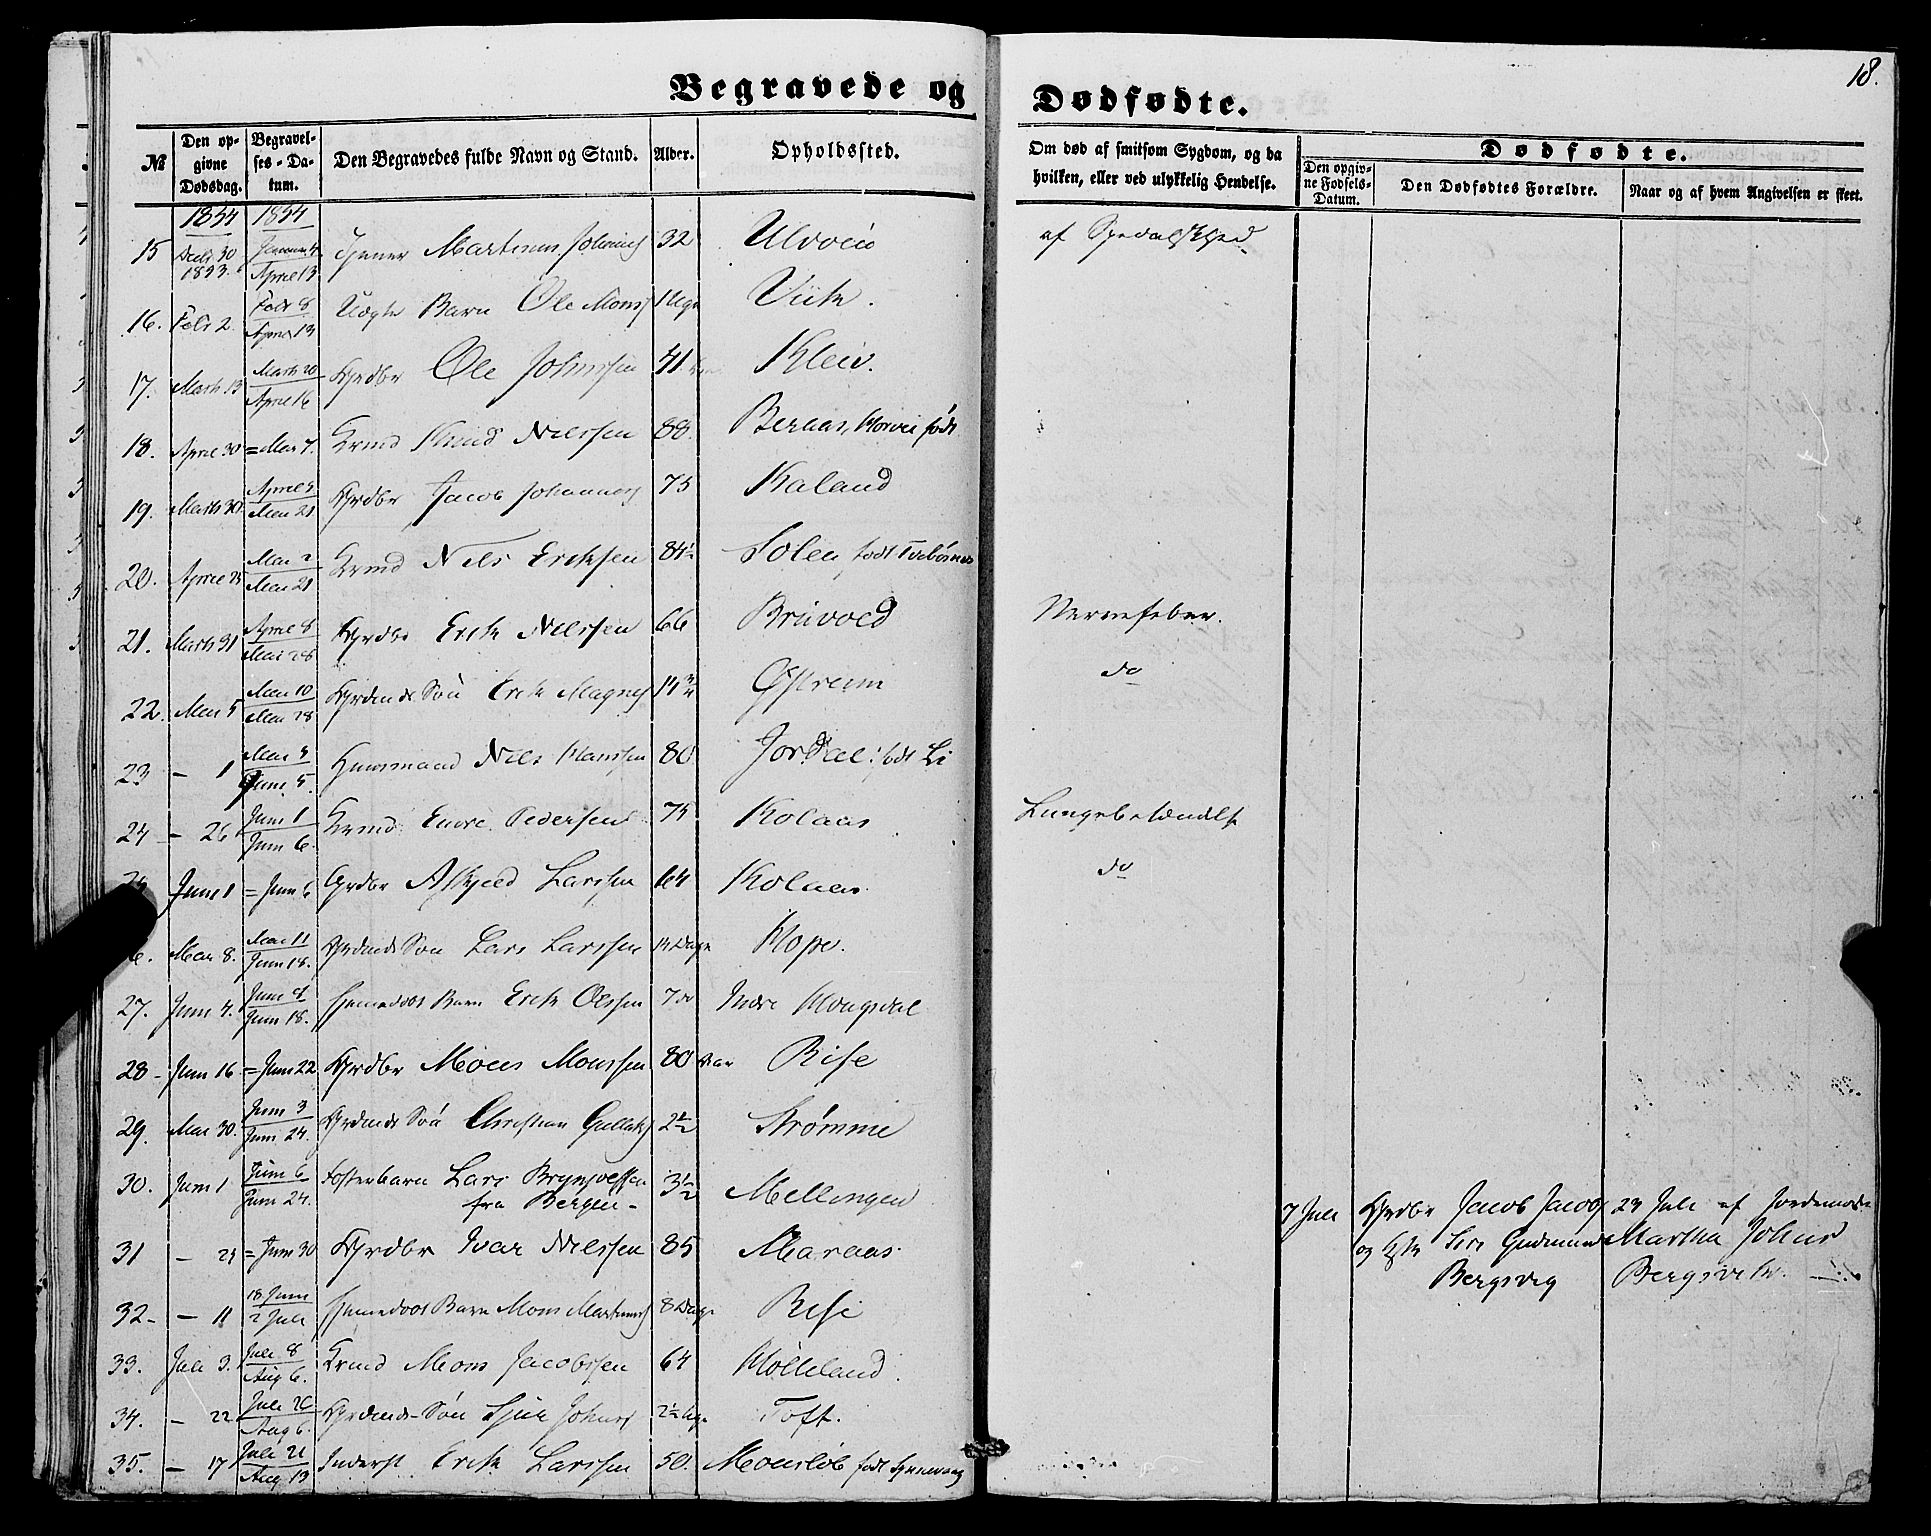 18.
Begravede og Dødfødte.
№ Den opgivne Dødsdag. Begravelses-Datum. Den Begravedes fulde Navn og Stand. Alder. Opholdssted. Om død af smitsom Sygdom, og da hvilken, eller ved ulykkelig Hendelse. Dødfødte.
Den opgivne Fødsels-Datum. Den Dødfødtes Forældre. Naar og af hvem Angivelsen er skeet.
1854 1854
15 30 1853. Januar 4 April 13 Tjener Martinus Johannes 32 Ulvøen af Spedalskhed
16. Febr 2. Febr 8 April 13 Uægte Barn Ole Mons 1 Uge Viik.
17. Marts 13 Marts 20 April 16 Grdbr Ole Johnssen 41 Kleiv.
18. April 30 = Mai 7. Krmd Knud Nilssen 88. Beraas, født
19. Marts 30. April 5 Mai 21 Grdbr Jacob Johannes 75 Kaland
20. April 25 Mai 2 Mai 21 Krmd Nils Eriksen 84½ født
21. Marts 31 April 8 Mai 28 Grdbr Erik Nilssen 66 Bruvold Nervefeber.
22. Mai 5 Mai 10 Mai 28 Grdmds Søn Erik Magnes 14¾ Østreim do
23 – 1 Mai 5 Juni 5. Huusmand Nils Hanssen 80 Jordal: født Li
24 – 26 Juni 1 Juni 6. Krmd Endre Pedersen 75 Kolaas Lungebetændelse
Juni 1 = Juni 6 Grdbr Askjeld Larssen 64 Kolaas do
6. Mai 8. Mai 11 Juni 18. Grdmds Søn Lars Larssen 14 Dage Hope.
27. Juni 4. Juni 9 Juni 18. Hjemedøbt Barn Erik Olssen 7 do Indre Mongsdal
28 – Juni 16 = Juni 22 Grdbr Moens Monssen 80 Aar Rise
29. Mai 30. Juni 3 Juni 24. Grdmds Søn Christian Gullaks 2½ Strømme
30. Juni 1 Juni 6 Juni 24. Fosterbarn Lars Brynjulfssen 3½ Mellingen
fra Bergen –
7 Juli Grdbr Jacob Jacobs 23 Juli af Jordemoder
31 – 25 = Juni 30 Grdbr Ivar Nilssen 85 Maraas. og Hstr Siri Gudmunds Martha Johns
Bergsvig Bergsvik.
32 – – 11 18 Juni 2 Juli Hjemedøbt Barn Mons Martinus 8 Dage Rise
33. Juli 3. Juli 8 Aug 6. Krmd Mons Jacobssen 64 Mølleland.
34. – 22 Juli 26 Aug 6. Grdmds Søn Sjur Johns 2½ Uge Toft.
35. – 17 Juli 21 Aug 13 Inderst Erik Larssen 50. Monsløb født